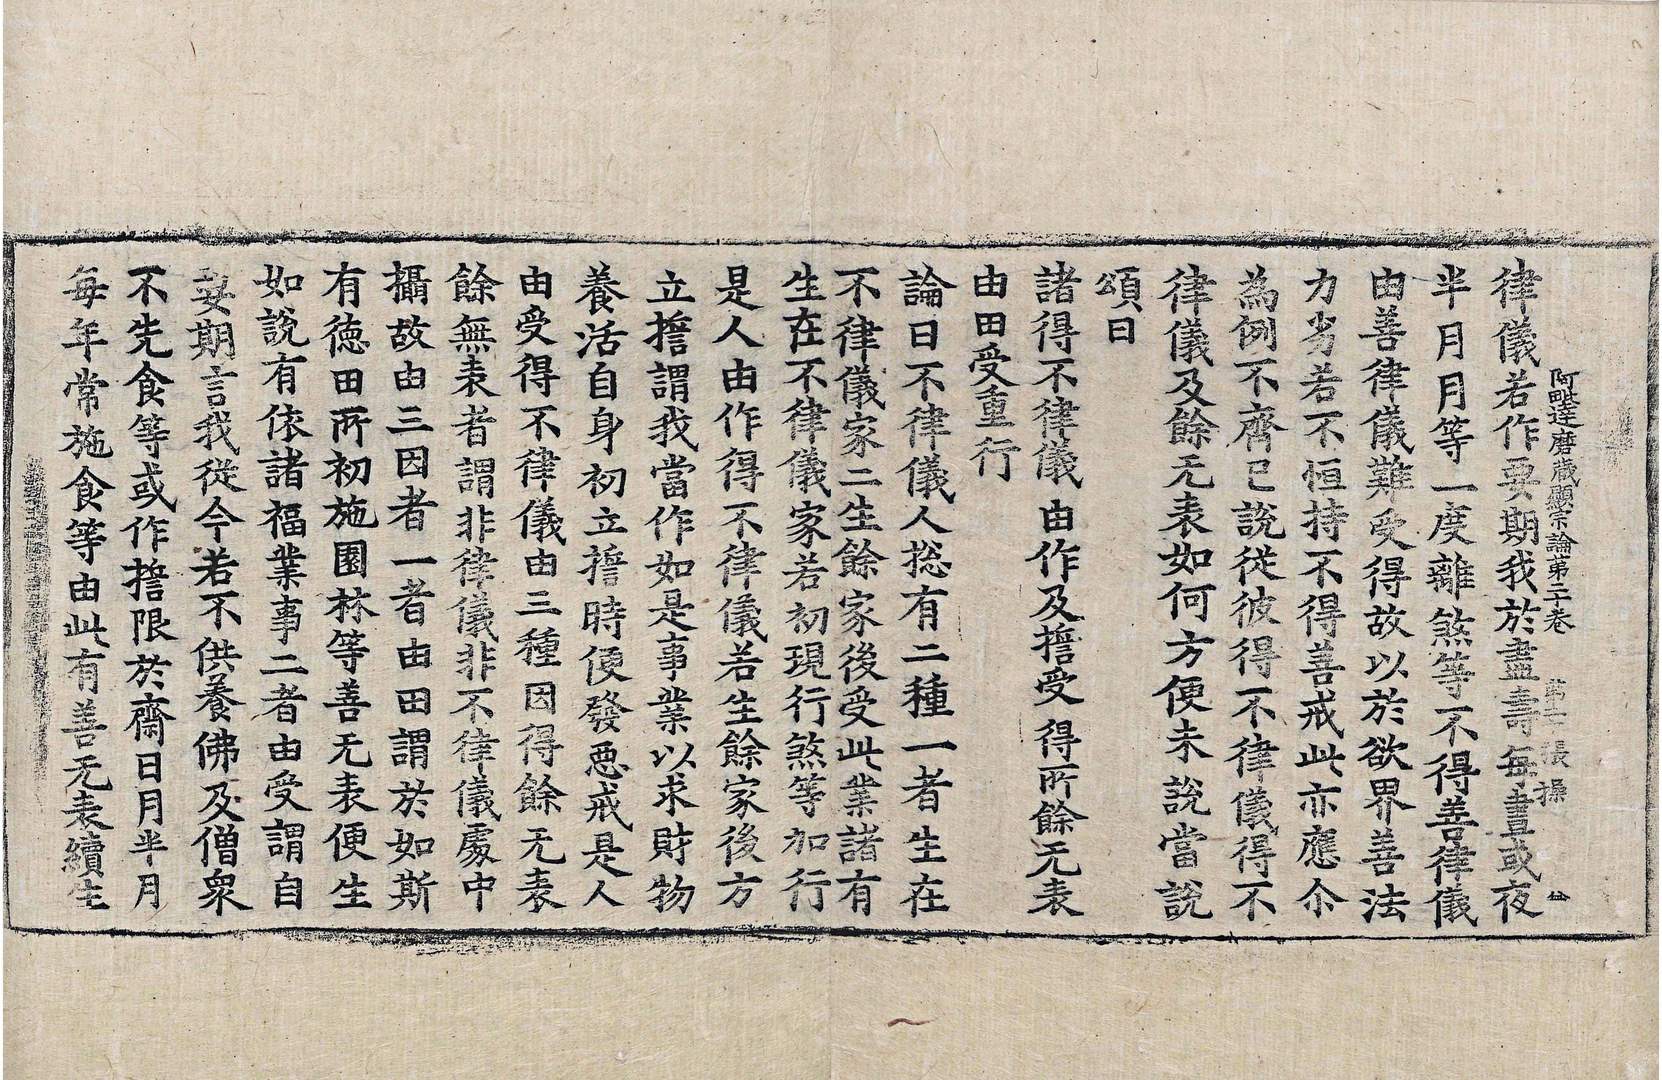 阿毗達磨藏顯宗論第二十卷 第二十張 操
律儀若作要期我於盡壽每晝或夜
半月月等一度離煞等不得善律儀
由善律儀難受得故以於欲界善法
力劣若不恒持不得善戒此亦應尒
為例不齊已說從彼得不律儀得不
律儀及餘无表如何方便未說當說
頌曰
諸得不律儀 由作及擔受 得所餘无表
由田受重行
論曰不律儀人捴有二種一者生在
不律儀家二生餘家後受此業諸有
生在不律儀家若初現行煞等加行
是人由作得不律儀若生餘家後方
立擔謂我當作如是事業以求財物
養活自身初立擔時便發惡戒是人
由受得不律儀由三種因得餘无表
餘無表者謂非律儀非不律儀處中
攝故由三因者一者由田謂於如斯
有德田所初施園林等善无表便生
如說有依諸福業事二者由受謂自
要期言我從今若不供養佛及僧眾
不先食等或作擔限於齋日月半月
每年常施食等由此有善无表續生